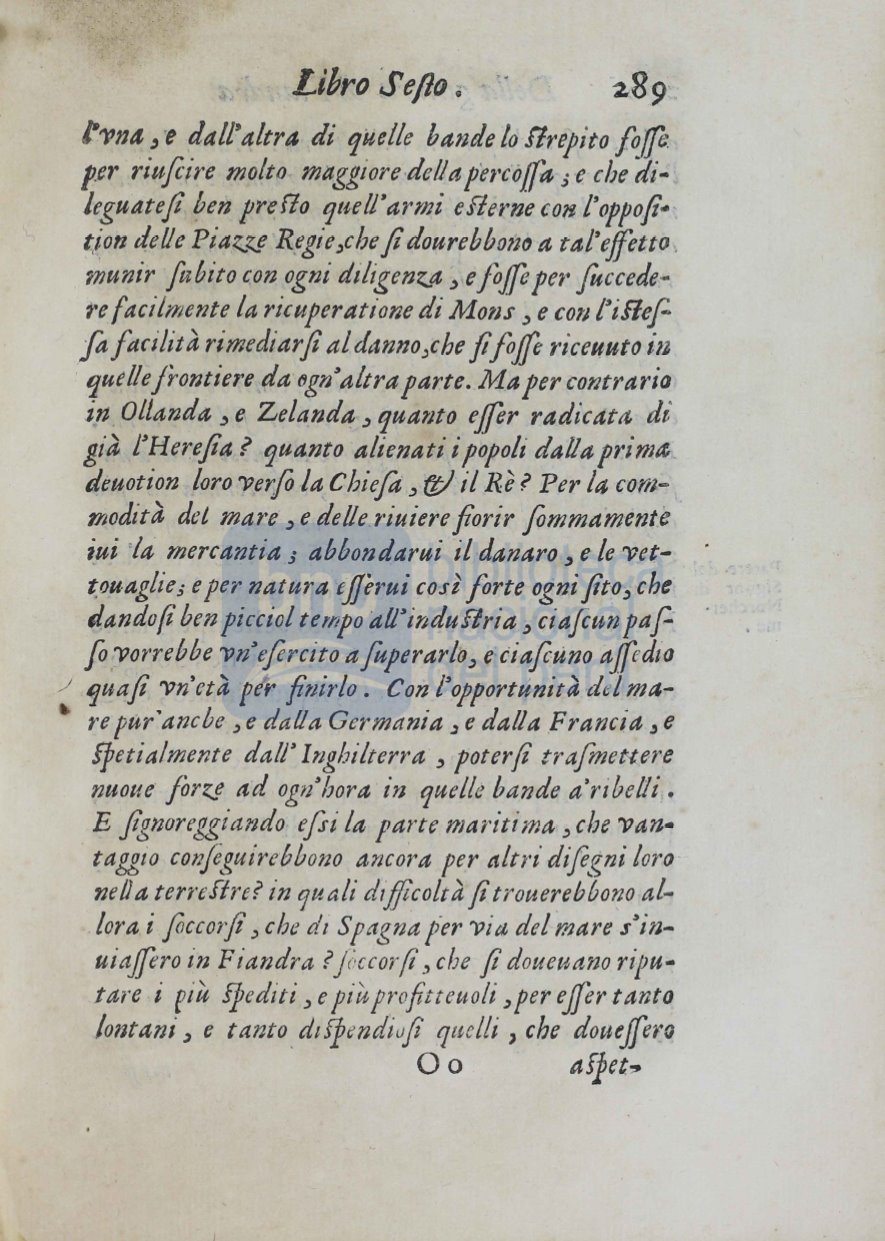 Libro Seſto. 289
l'vna, e dall'altra di quelle bande lo ſtrepito foſſe
per riuſcire molto maggiore della percoſſa; e che di-
leguateſi ben preſto quell'armi eſterne con l'oppoſi-
tion delle Piazze Regie, che ſi dourebbono a tal'effetto
munir ſubito con ogni diligenza, e foſſe per ſuccede-
re facilmente la ricuperatione di Mons, e con l'iſteſ-
ſa facilità rimediarſi al danno, che ſi foſſe riceuuto in
quelle frontiere da ogn'altra parte. Ma per contrario
in Ollanda, e Zelanda, quanto eſſer radicata di
già l'Hereſia? quanto alienati i popoli dalla prima
deuotion loro verſo la Chieſa, & il Rè? Per la com-
modità del mare, e delle riuiere fiorir ſommamente
iui la mercantia; abbondarui il danaro, e le vet-
touaglie; e per natura eſſerui così forte ogni ſito, che
dandoſi ben picciol tempo all'induſtria, ciaſcun paſ-
ſo vorrebbe vn'eſercito a ſuperarlo, e ciaſcuno aſſedio
quaſi vn'età per finirlo. Con l'opportunità del ma-
re pur'anche, e dalla Germania, e dalla Francia, e
ſpetialmente dall'Inghilterra, poterſi traſmettere
nuoue forze ad ogn'hora in quelle bande a'ribelli.
E ſignoreggiando eſsi la parte maritima, che van-
taggio conſeguirebbono ancora per altri diſegni loro
nella terreſtre? in quali difficoltà ſi trouerebbono al-
lora i ſoccorſi, che di Spagna per via del mare s'in-
uiaſſero in Fiandra? ſoccorſi, che ſi doueuano ripu-
tare i più ſpediti, e più profitteuoli, per eſſer tanto
lontani, e tanto diſpendioſi quelli, che doueſſero
Oo aſpet-